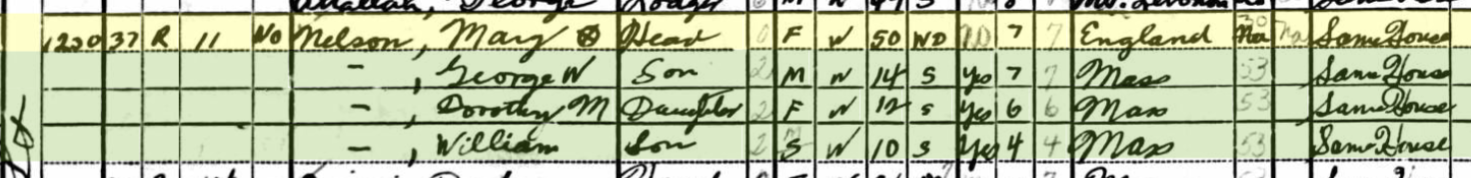 George
1220 37 R 11 No Nelson, Mary Head F W 50 WD No 7 7 England Na Same House
- , George W Son 2 M W 14 S Yes 7 7 Mass 53 Same House
- , Dorothy M Daughter 2 F W 12 S Yes 6 6 Mass 53 Same House
- , William Son 2 S W 10 S Yes 4 4 Mass 53 Same House